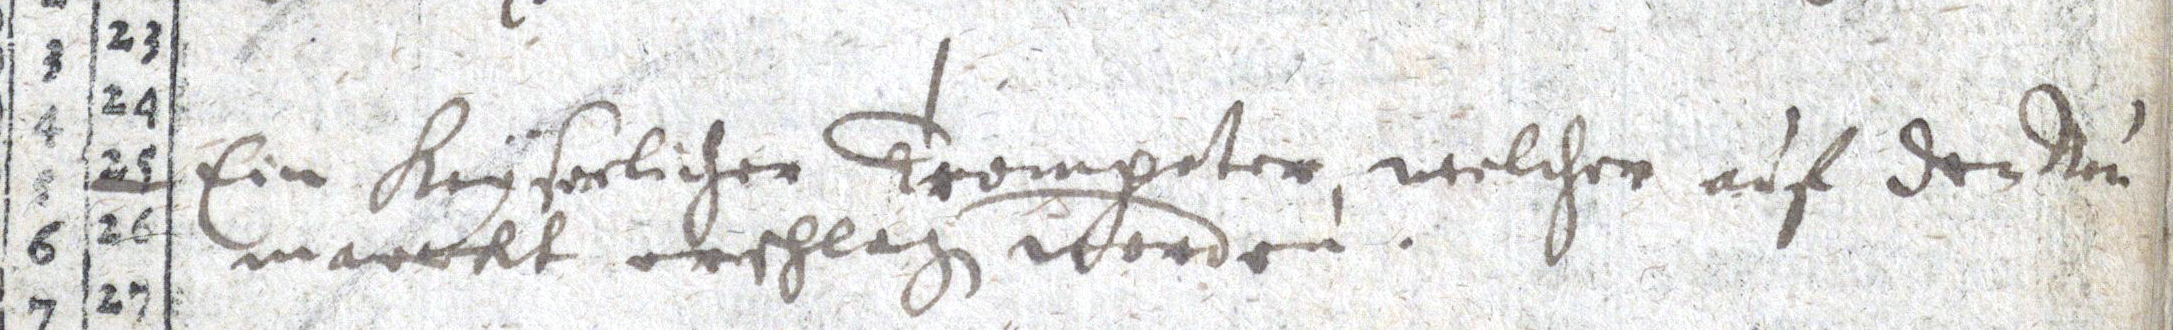 3 23
4 24
5 25 Ein Keyserlicher Trompeter, welcher auf den Neu
6 26 marckt erschlagen worden.
7 27